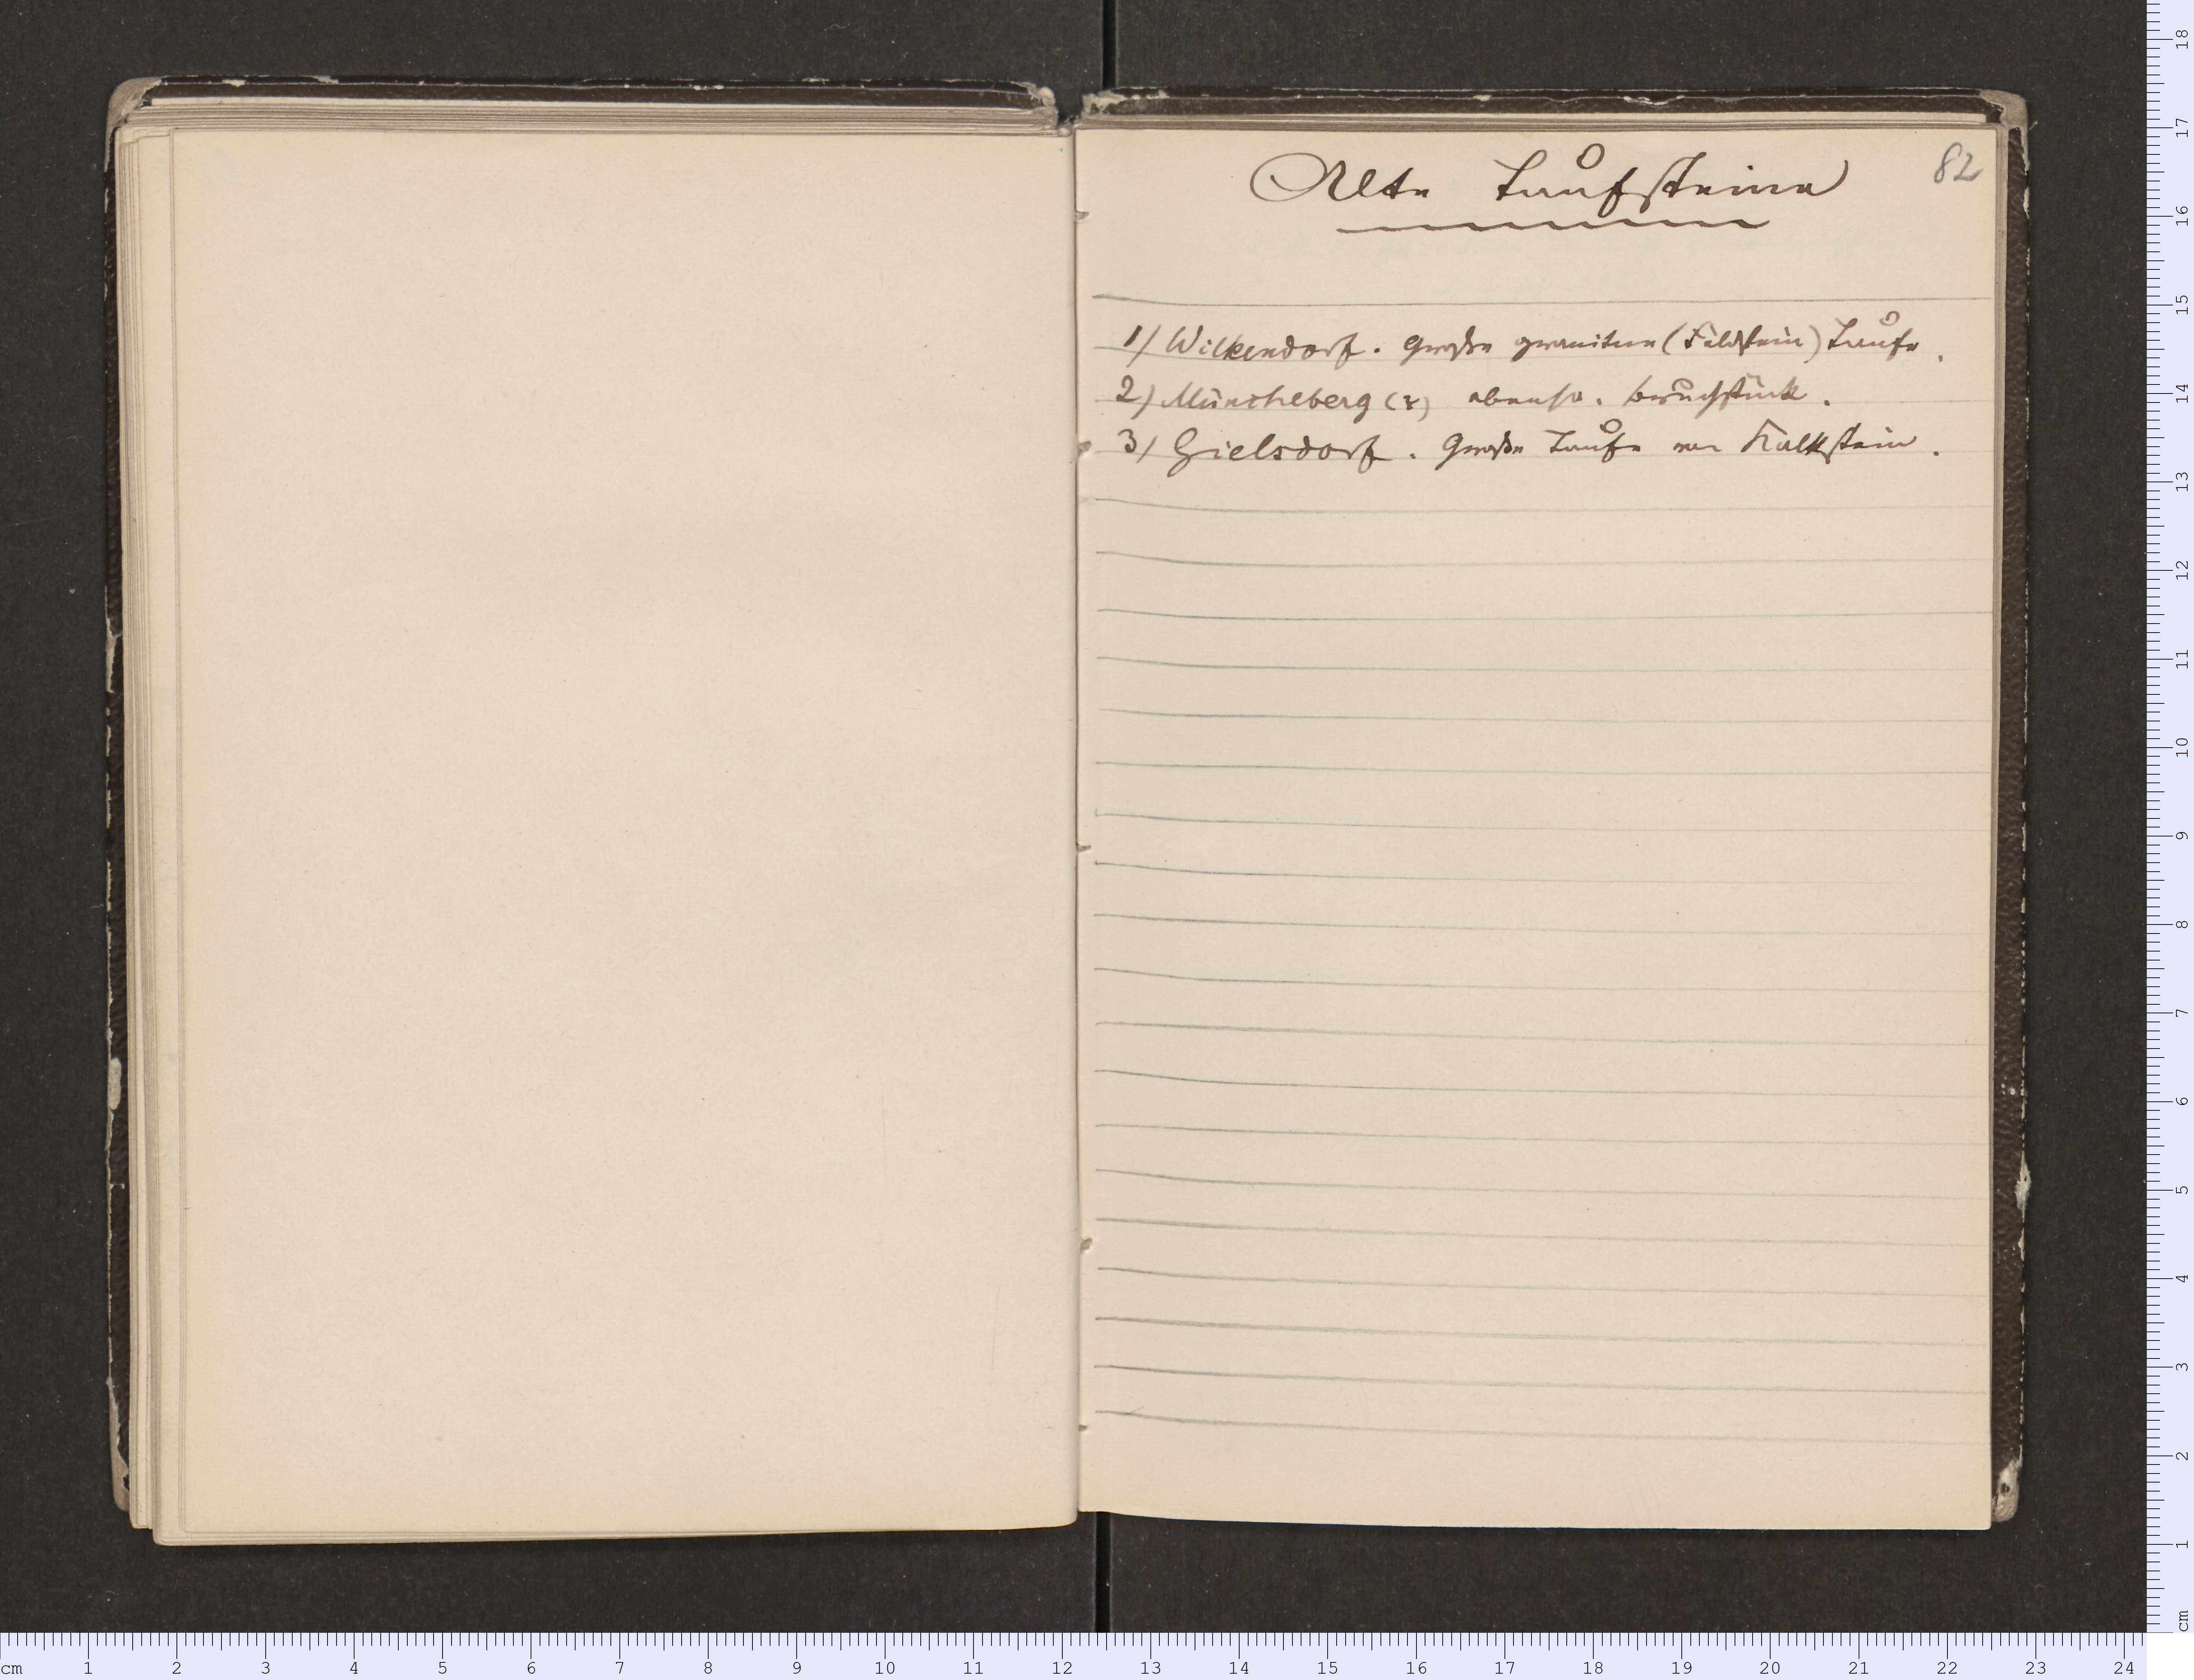 82
Alte Taufsteine
1) Wilkendorf. Große granitne (Feldstein) Taufe.
2) Müncheberg ebenso. Bruchstück.
3) Gielsdorf. Große Taufe von Kalkstein.
18
17
16
15
14
13
12
11
10
9
8
7
6
5
4
3
2
1
cm
cm 1 2 3 4 5 6 7 8 9 10 11 12 13 14 15 16 17 18 19 20 21 22 23 24